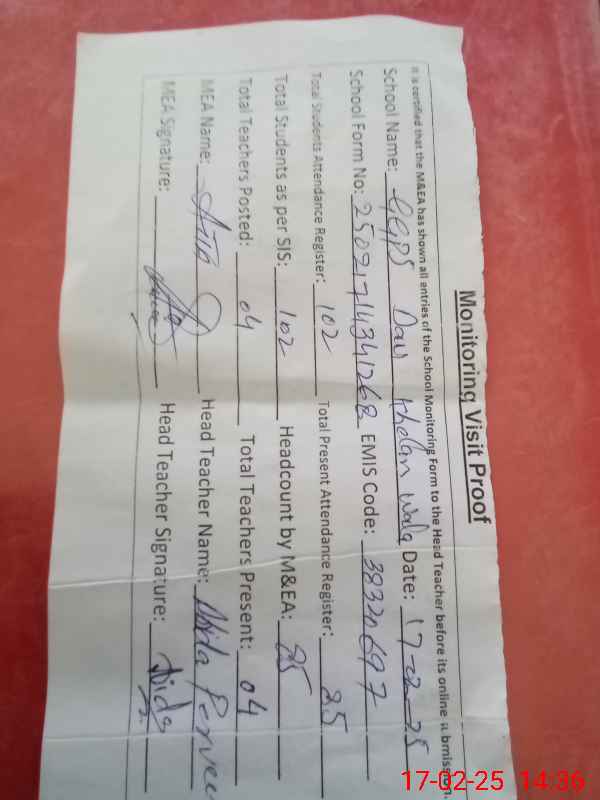 Monitoring Visit Proof
It is certified that the M&EA has shown all entries of the School Monitoring Form to the Head Teacher before its online submission.
School Name: GGPS Dau Khelan Wala Date: 17-02-25
School Form No: 25021714341268 EMIS Code: 38320697
Total Students Attendance Register: 102 Total Present Attendance Register: 85
Total Students as per SIS: 102 Headcount by M&EA: 85
Total Teachers Posted: 04 Total Teachers Present: 04
MEA Name: Head Teacher Name: Abida Perveen
MEA Signature: Head Teacher Signature: Abida
17-02-25 14:36